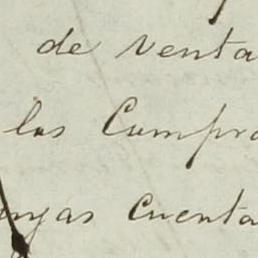 de venta
los Compra
uyas Cuenta